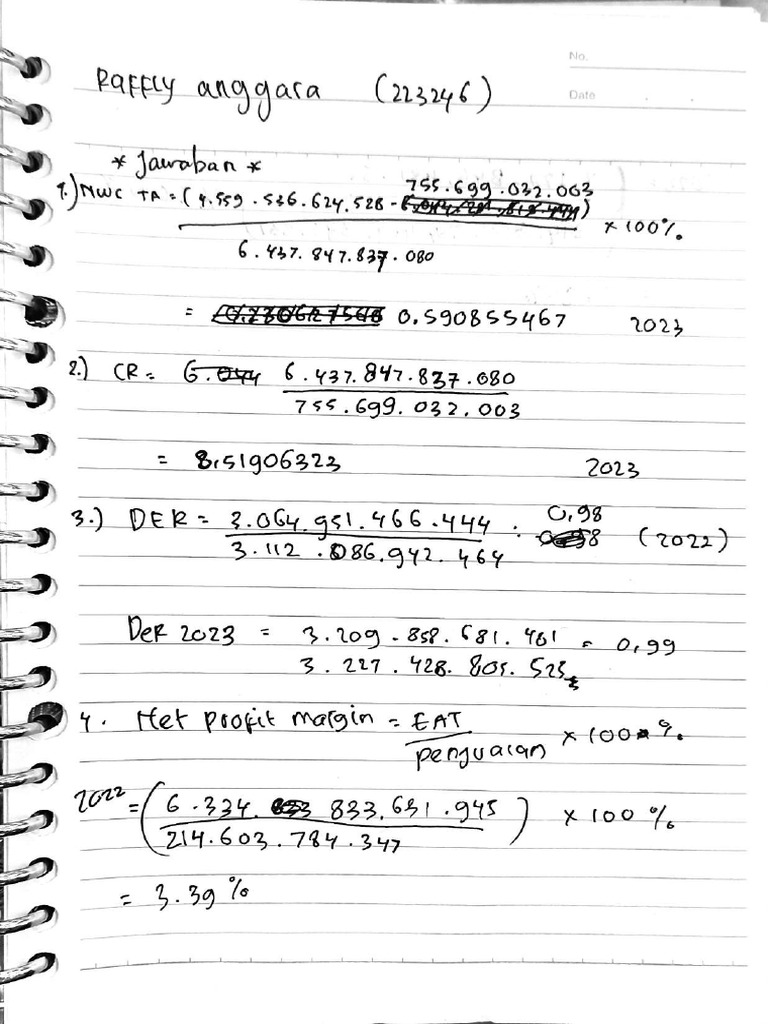 No.
Date
Raffly anggara (223246)
* Jawaban *
755.699.032.003
1.) NWC TA = (4.559.536.624.528 - ) x 100%
6.437.847.837.080
= 0.590855467 2023
2.) CR = 6.437.847.837.080
755.699.032.003
= 8,51906323 2023
3.) DER = 3.064.951.466.444 : 0,98 (2022)
3.112.086.942.464
DeR 2023 = 3.209.858.681.461 = 0,99
3.227.428.805.525
4. Net profit margin = EAT x 100 %
penjualan
2022 = (6.334.833.631.945) x 100 %
214.603.784.347
= 3.39 %